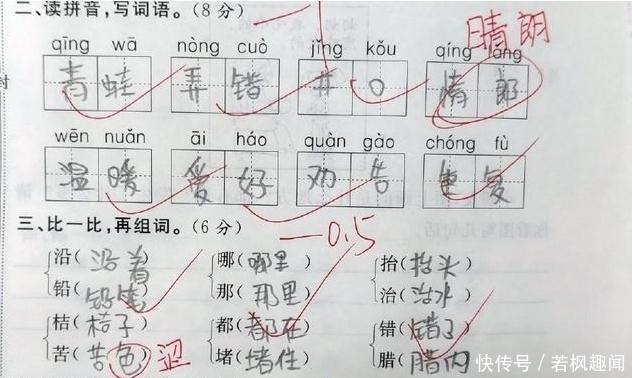 二、读拼音，写词语。(8分)
qīng wā nòng cuò jǐng kǒu qíng lǎng 晴朗
青蛙 弄错 井口 情郎
wēn nuǎn ài háo quàn gào chóng fù
温暖 爱好 劝告 重复
三、比一比，再组词。(6分) —0.5
沿(沿着) 哪(哪里) 抬(抬头)
铅(铅笔) 那(那里) 治(治水)
桔(桔子) 都(都在) 错(错了)
苦(苦色)涩 堵(堵住) 腊(腊肉)
快传号／若枫趣闻